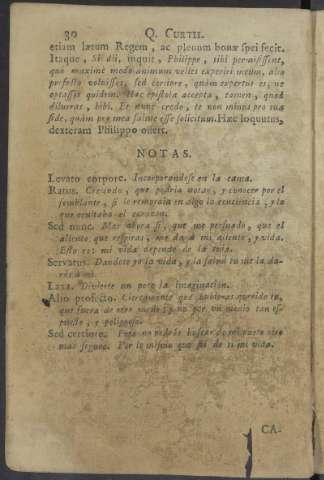 30 Q. CURTII.
etiam lætum Regem, ac plenum bonæ spei fecit.
Itaque, Si dii, inquit, Philippe, tibi permisissent,
quo maxime modo animum velles experiri meum, alio
profecto voluisses, sed certiore, quàm expertus es, ne
optasses quidem. Hac epistola accepta, tamen, quod
dilueras, bibi. Et nunc credo, te non minus pro tua
fide, quàm pro mea salute esse solicitum. Hæc loquutus,
dexteram Philippo offert.
NOTAS.
Levato corpore. Incorporandose en la cama.
Ratus. Creyendo, que podria notar, y conocer por el
semblante, si le remordia en algo la conciencia; y la
que ocultaba el corazon.
Sed nunc. Mas ahora si, que me persuado, que el
aliento que respiras, me da á mi aliento, y vida.
Esto es: mi vida depende de la tuya.
Servatus. Dandote yo la vida, y la salud tu me la da-
rás á mi.
Laxa. Divierte un poco la imaginacion.
Alio profecto. Ciertamente que hubieras querido tu,
que fuera de otro modo; y no por un medio tan es-
puesto, y peligroso.
Sed certiore. Pero no podrás buscar de mi parte otro
mas seguro. Por lo mismo que fié de ti mi vida.
CA-